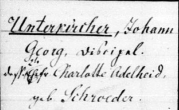 Unterkircher, Johann
Georg, Discipel.
Charlotte Adelheid,
geb. Schroeder.